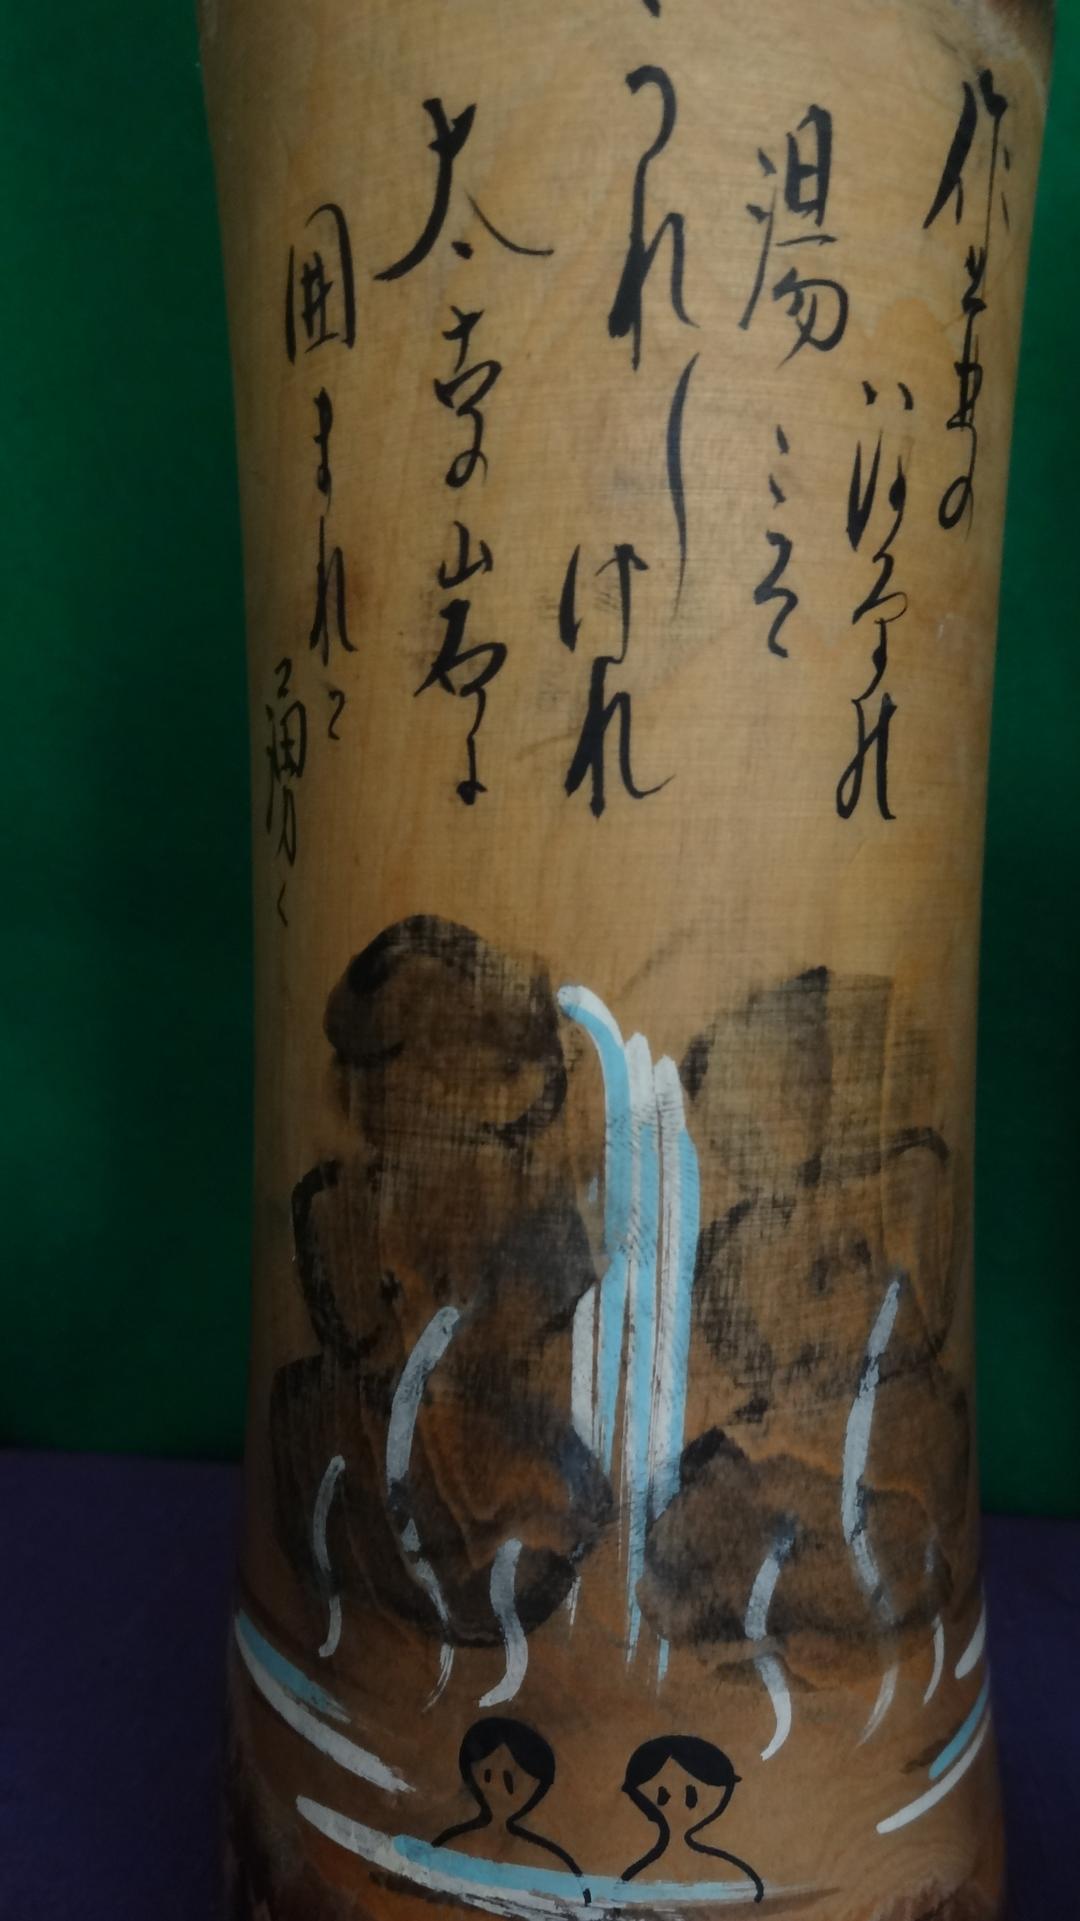 作並の
いで
湯こそ
うれし
けれ
太古の山
囲まれて
湧く